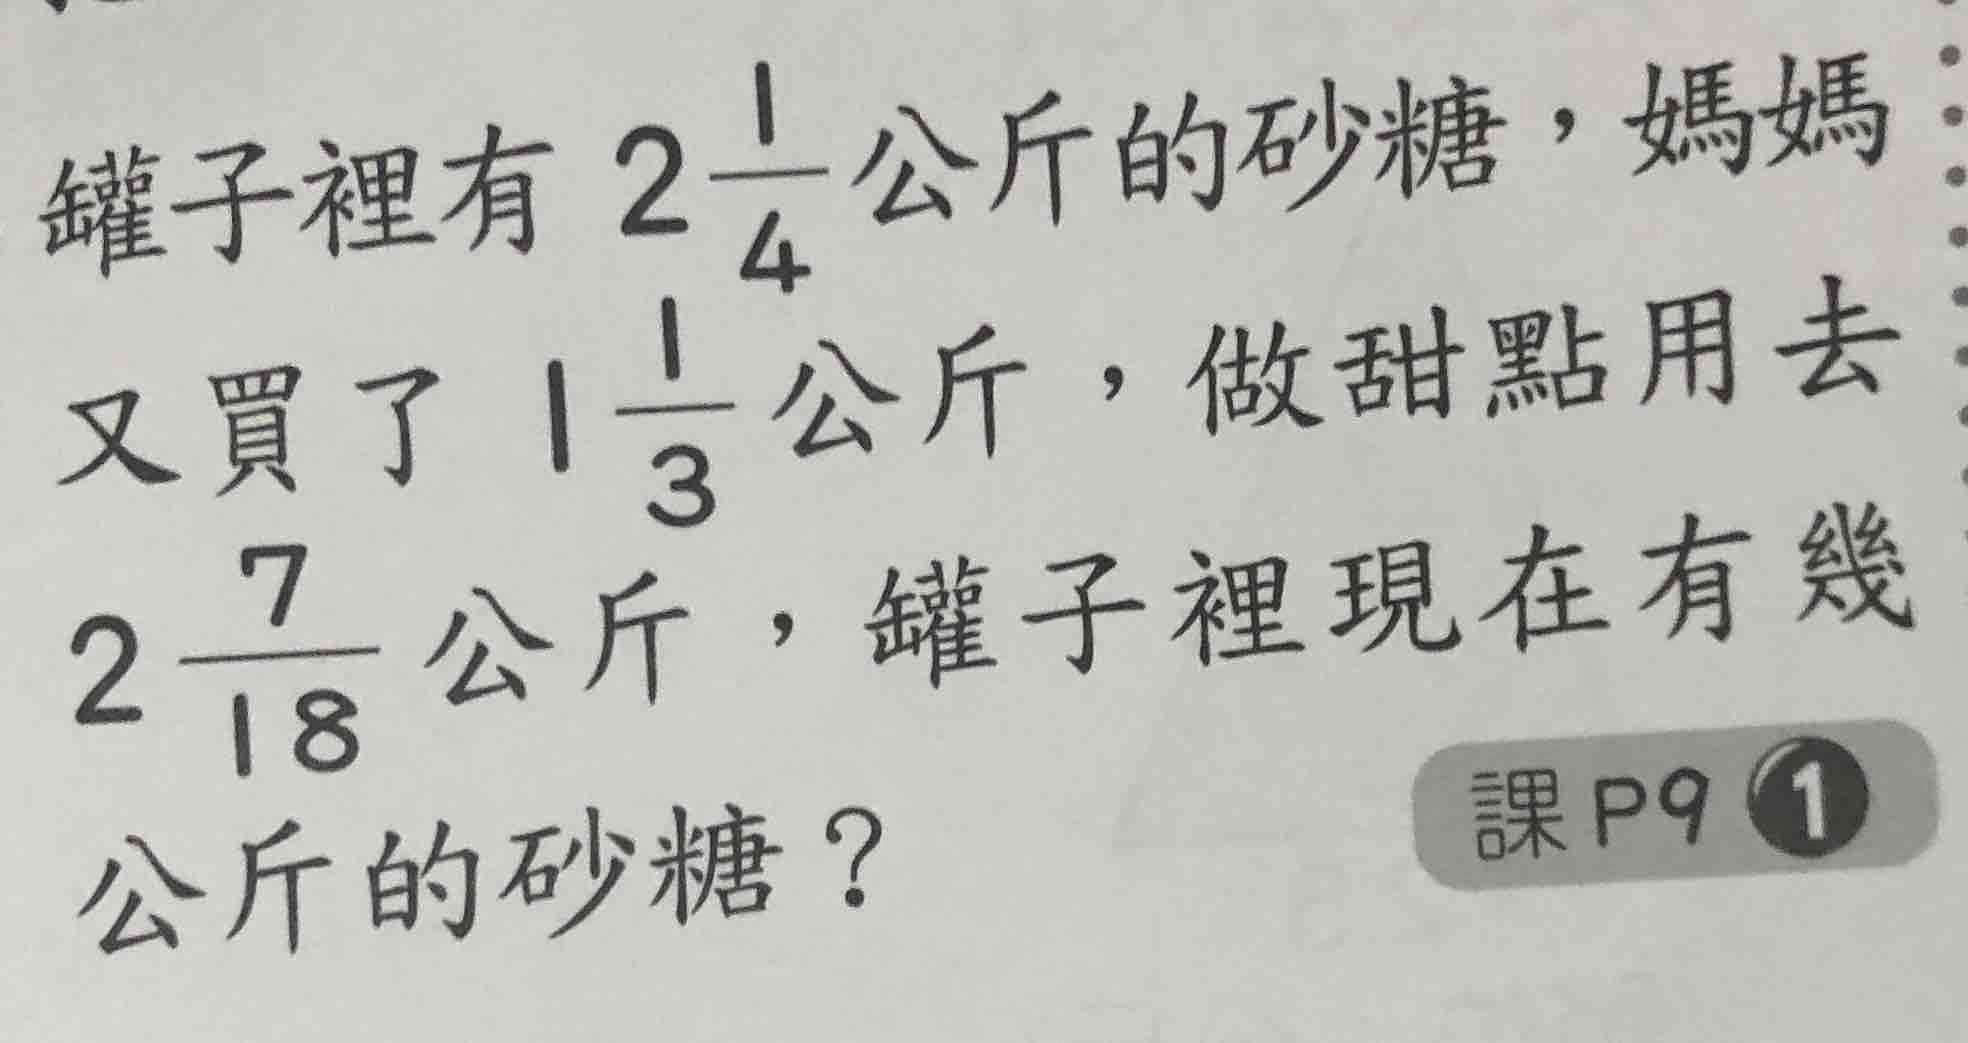 罐子裡有 2 1/4 公斤的砂糖，媽媽
又買了 1 1/3 公斤，做甜點用去
2 7/18 公斤，罐子裡現在有幾
公斤的砂糖？
課P9 1